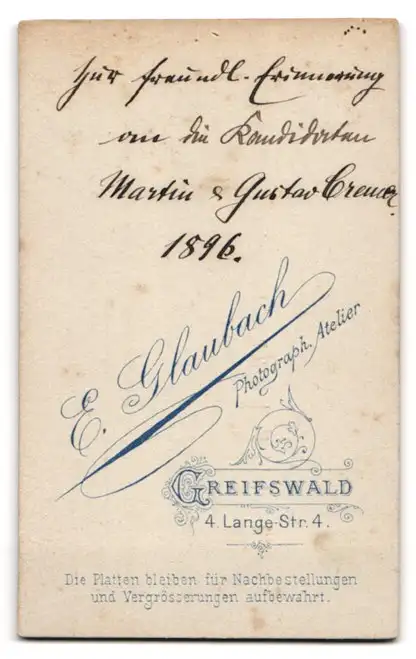 Zur freundl. Erinnerung
an die Kandidaten
Martin & Gustav Cremer
1896.
E. Glaubach
Photograph. Atelier
GREIFSWALD
4. Lange-Str. 4.
Die Platten bleiben für Nachbestellungen
und Vergrösserungen aufbewahrt.